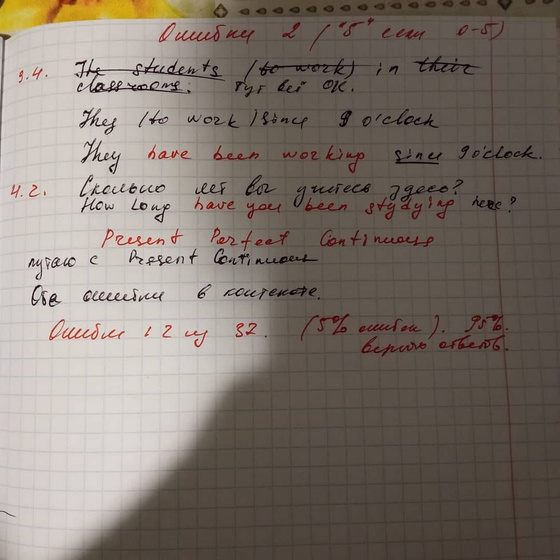 Ошибки 2 ("5" если 0-5)
3.4. The students (to work) in their
classrooms. Тут всё ОК.
They (to work) since 9 o'clock
They have been working since 9 o'clock.
4.2. Сколько лет вы учитесь здесь?
How long have you been studying here?
Present Perfect Continuous
путаю с Present Continuous
Обе ошибки в контексте.
Ошибки 2 из 32. (5% ошибок). 95%
верных ответов.